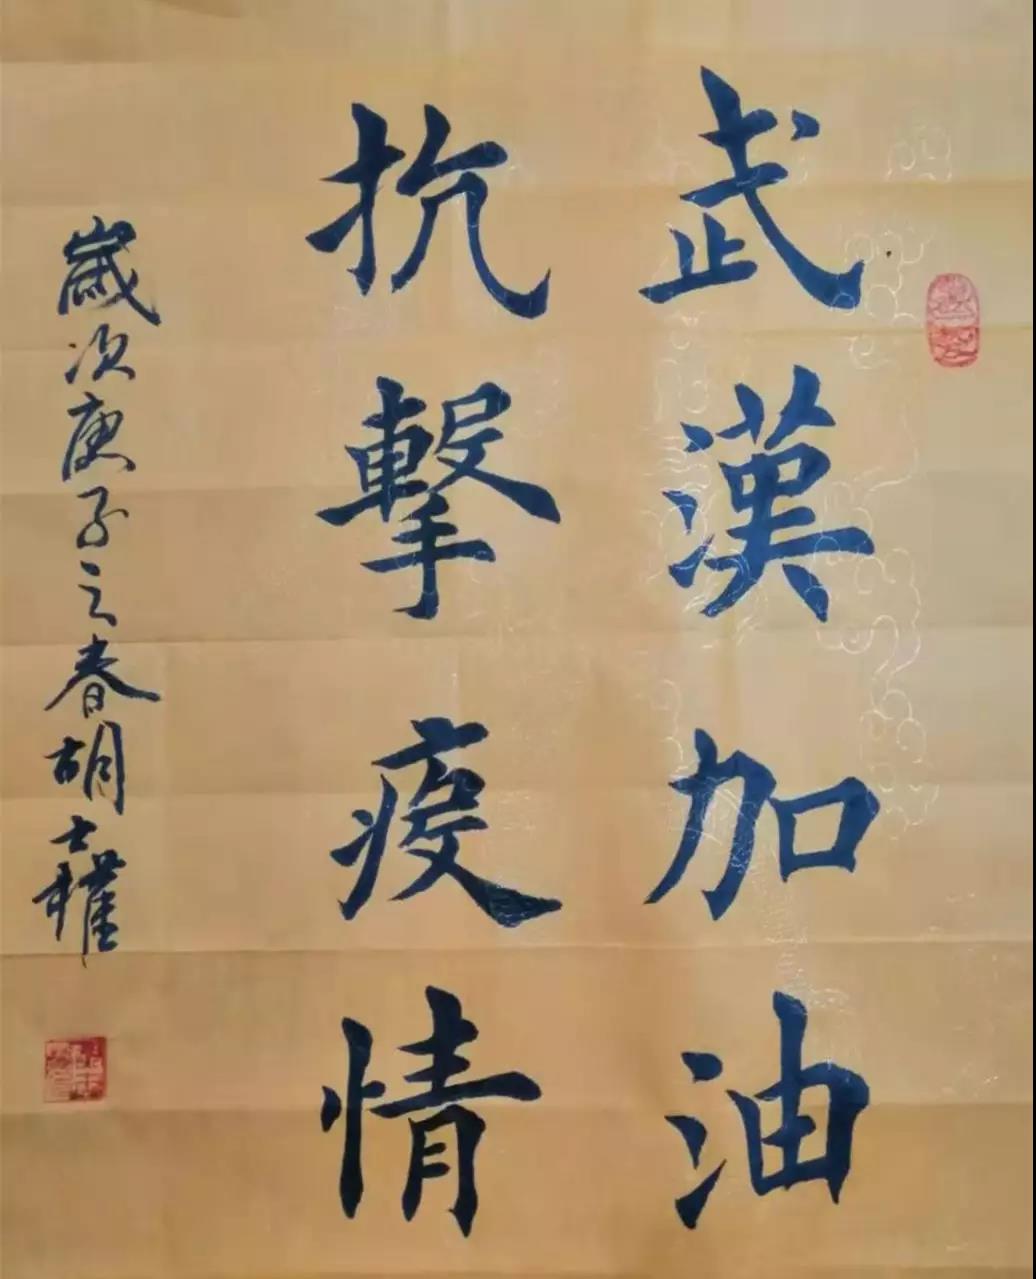 武漢加油
抗擊疫情
歲次庚子之春胡士權